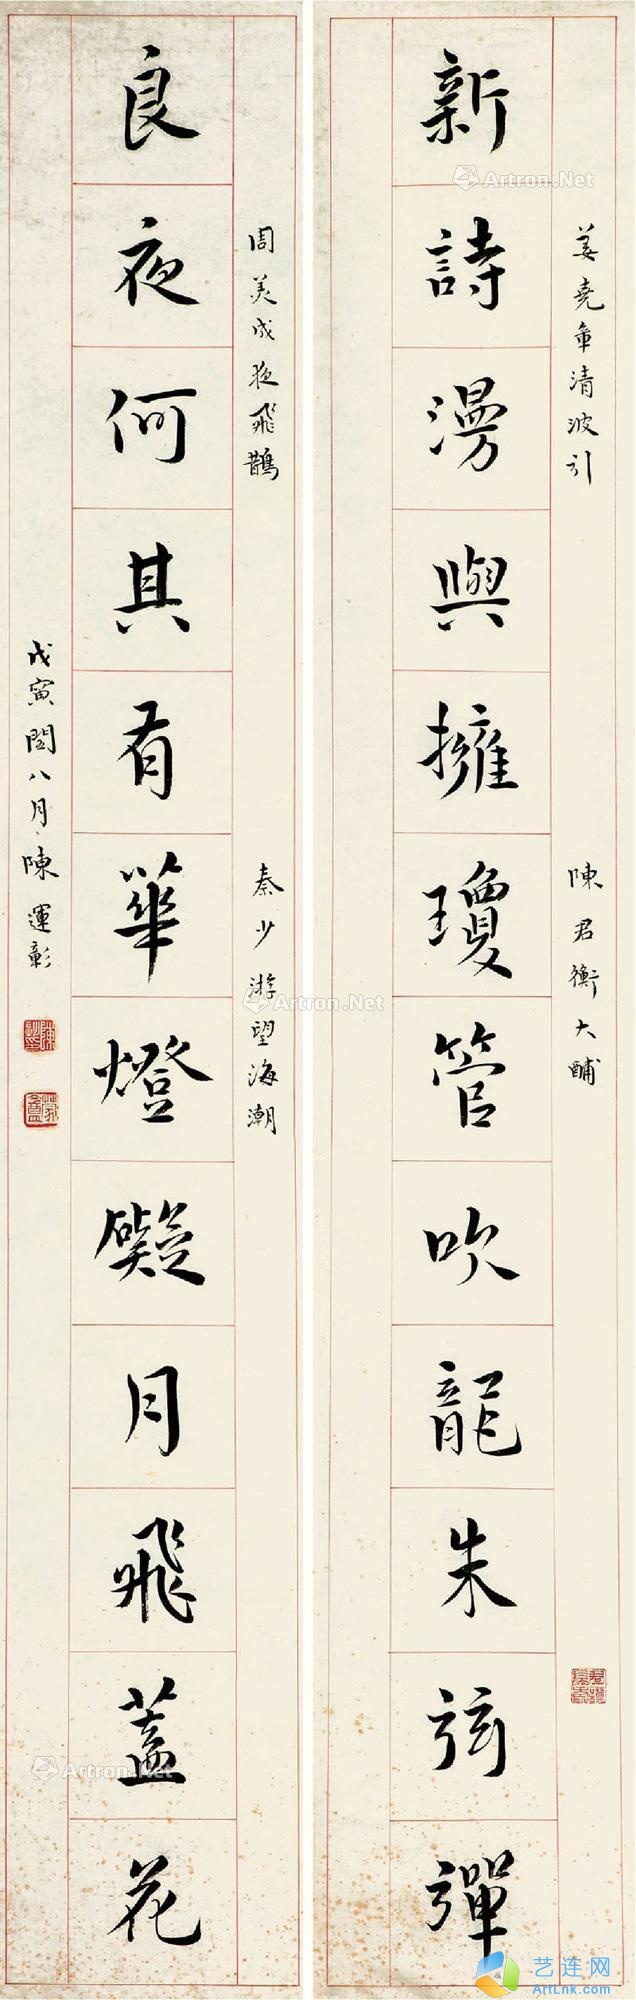 新詩漫與擁瓊管吹龍朱弦彈
姜堯章清波引
陳君衡大酺
良夜何其有華燈礙月飛蓋花
周美成夜飛鵲
秦少游望海潮
戊寅閏八月陳運彰
蒙盦
Artron.Net
Artron.Net
Artron.Net
Artron.Net
Artron.Net
艺连网
ArtLnk.Com